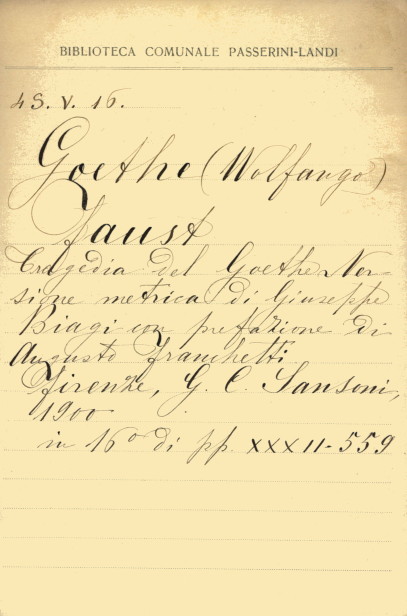 BIBLIOTECA COMUNALE PASSERINI-LANDI
4S. V. 16.
Goethe (Wolfango)
Faust
Tragedia del Goethe Ver-
sione metrica di Giuseppe
Biagi con prefazione di
Augusto Franchetti.
Firenze, G. C. Sansoni,
1900
in 16° di pp. XXXII-559